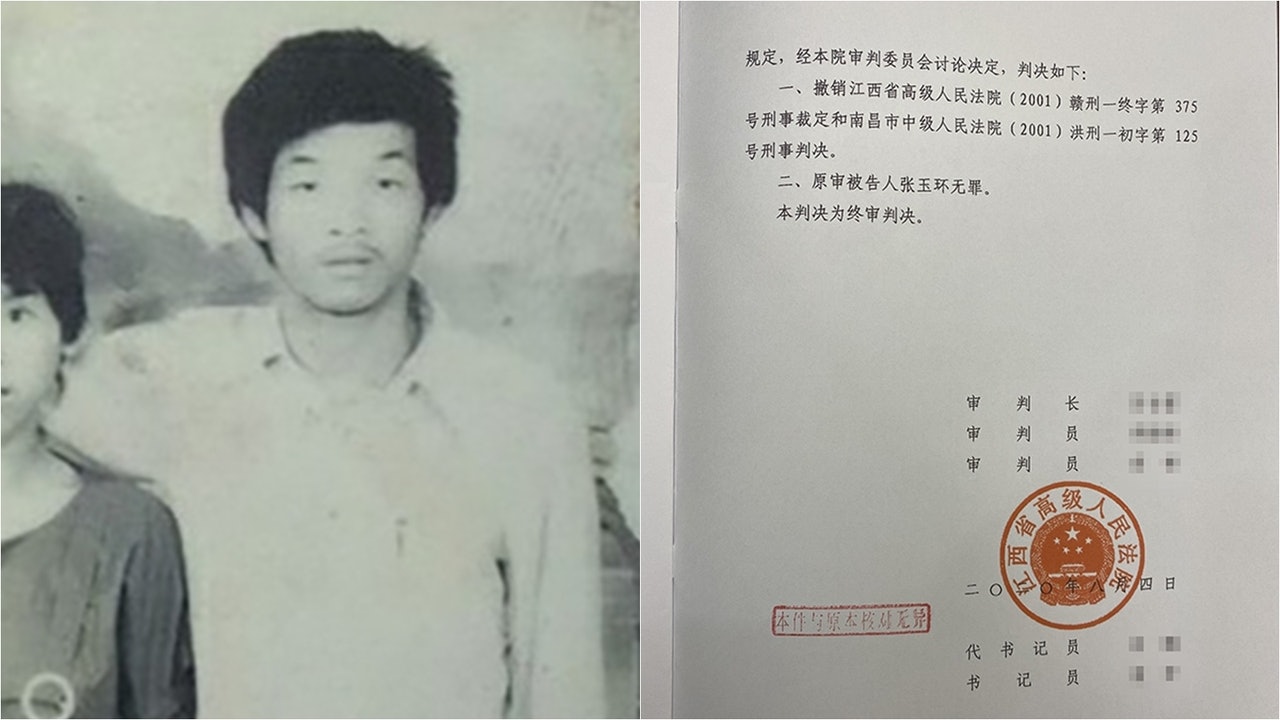 规定，经本院审判委员会讨论决定，判决如下：
一、撤销江西省高级人民法院（2001）赣刑一终字第 375
号刑事裁定和南昌市中级人民法院（2001）洪刑一初字第 125
号刑事判决。
二、原审被告人张玉环无罪。
本判决为终审判决。
审判长
审判员
审判员
江西省高级人民法院
二〇二〇年八月四日
本件与原本核对无异
代书记员
书记员